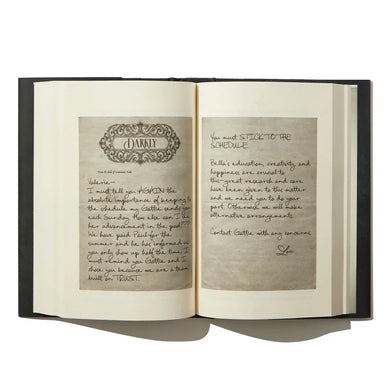 DARKLY
Valerie-
I must tell you AGAIN the
absolute importance of keeping to
the schedule my Gattie sends you
each Sunday. How else can I like
her advancement in the pool???
We have paid Paul for the
summer and he has informed us
you only show up half the time. I
must remind you Gattie and I
chose you because we are a team
built on TRUST.
You must STICK TO THE
SCHEDULE.
Bella's education, creativity, and
happiness are crucial to
this-great research and care
have been given to this matter
and we need you to do your
part. Otherwise we will make
alternative arrangements.
Contact Gattie with any concerns.